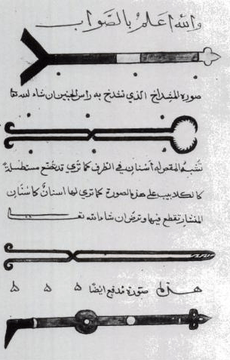 والله اعلم بالصواب
صورة المشداخ الذي تشدخ به راس الجنين ان شاء الله
تشبه المقص له اسنان في الطرف كما ترى وقد تصنع مستطيلة
كالكلاليب على هذه الصورة كما ترى لها اسنان كاسنان
المنشار تقطع فيها وترض ان شاء الله
صورة مدفع ايضا